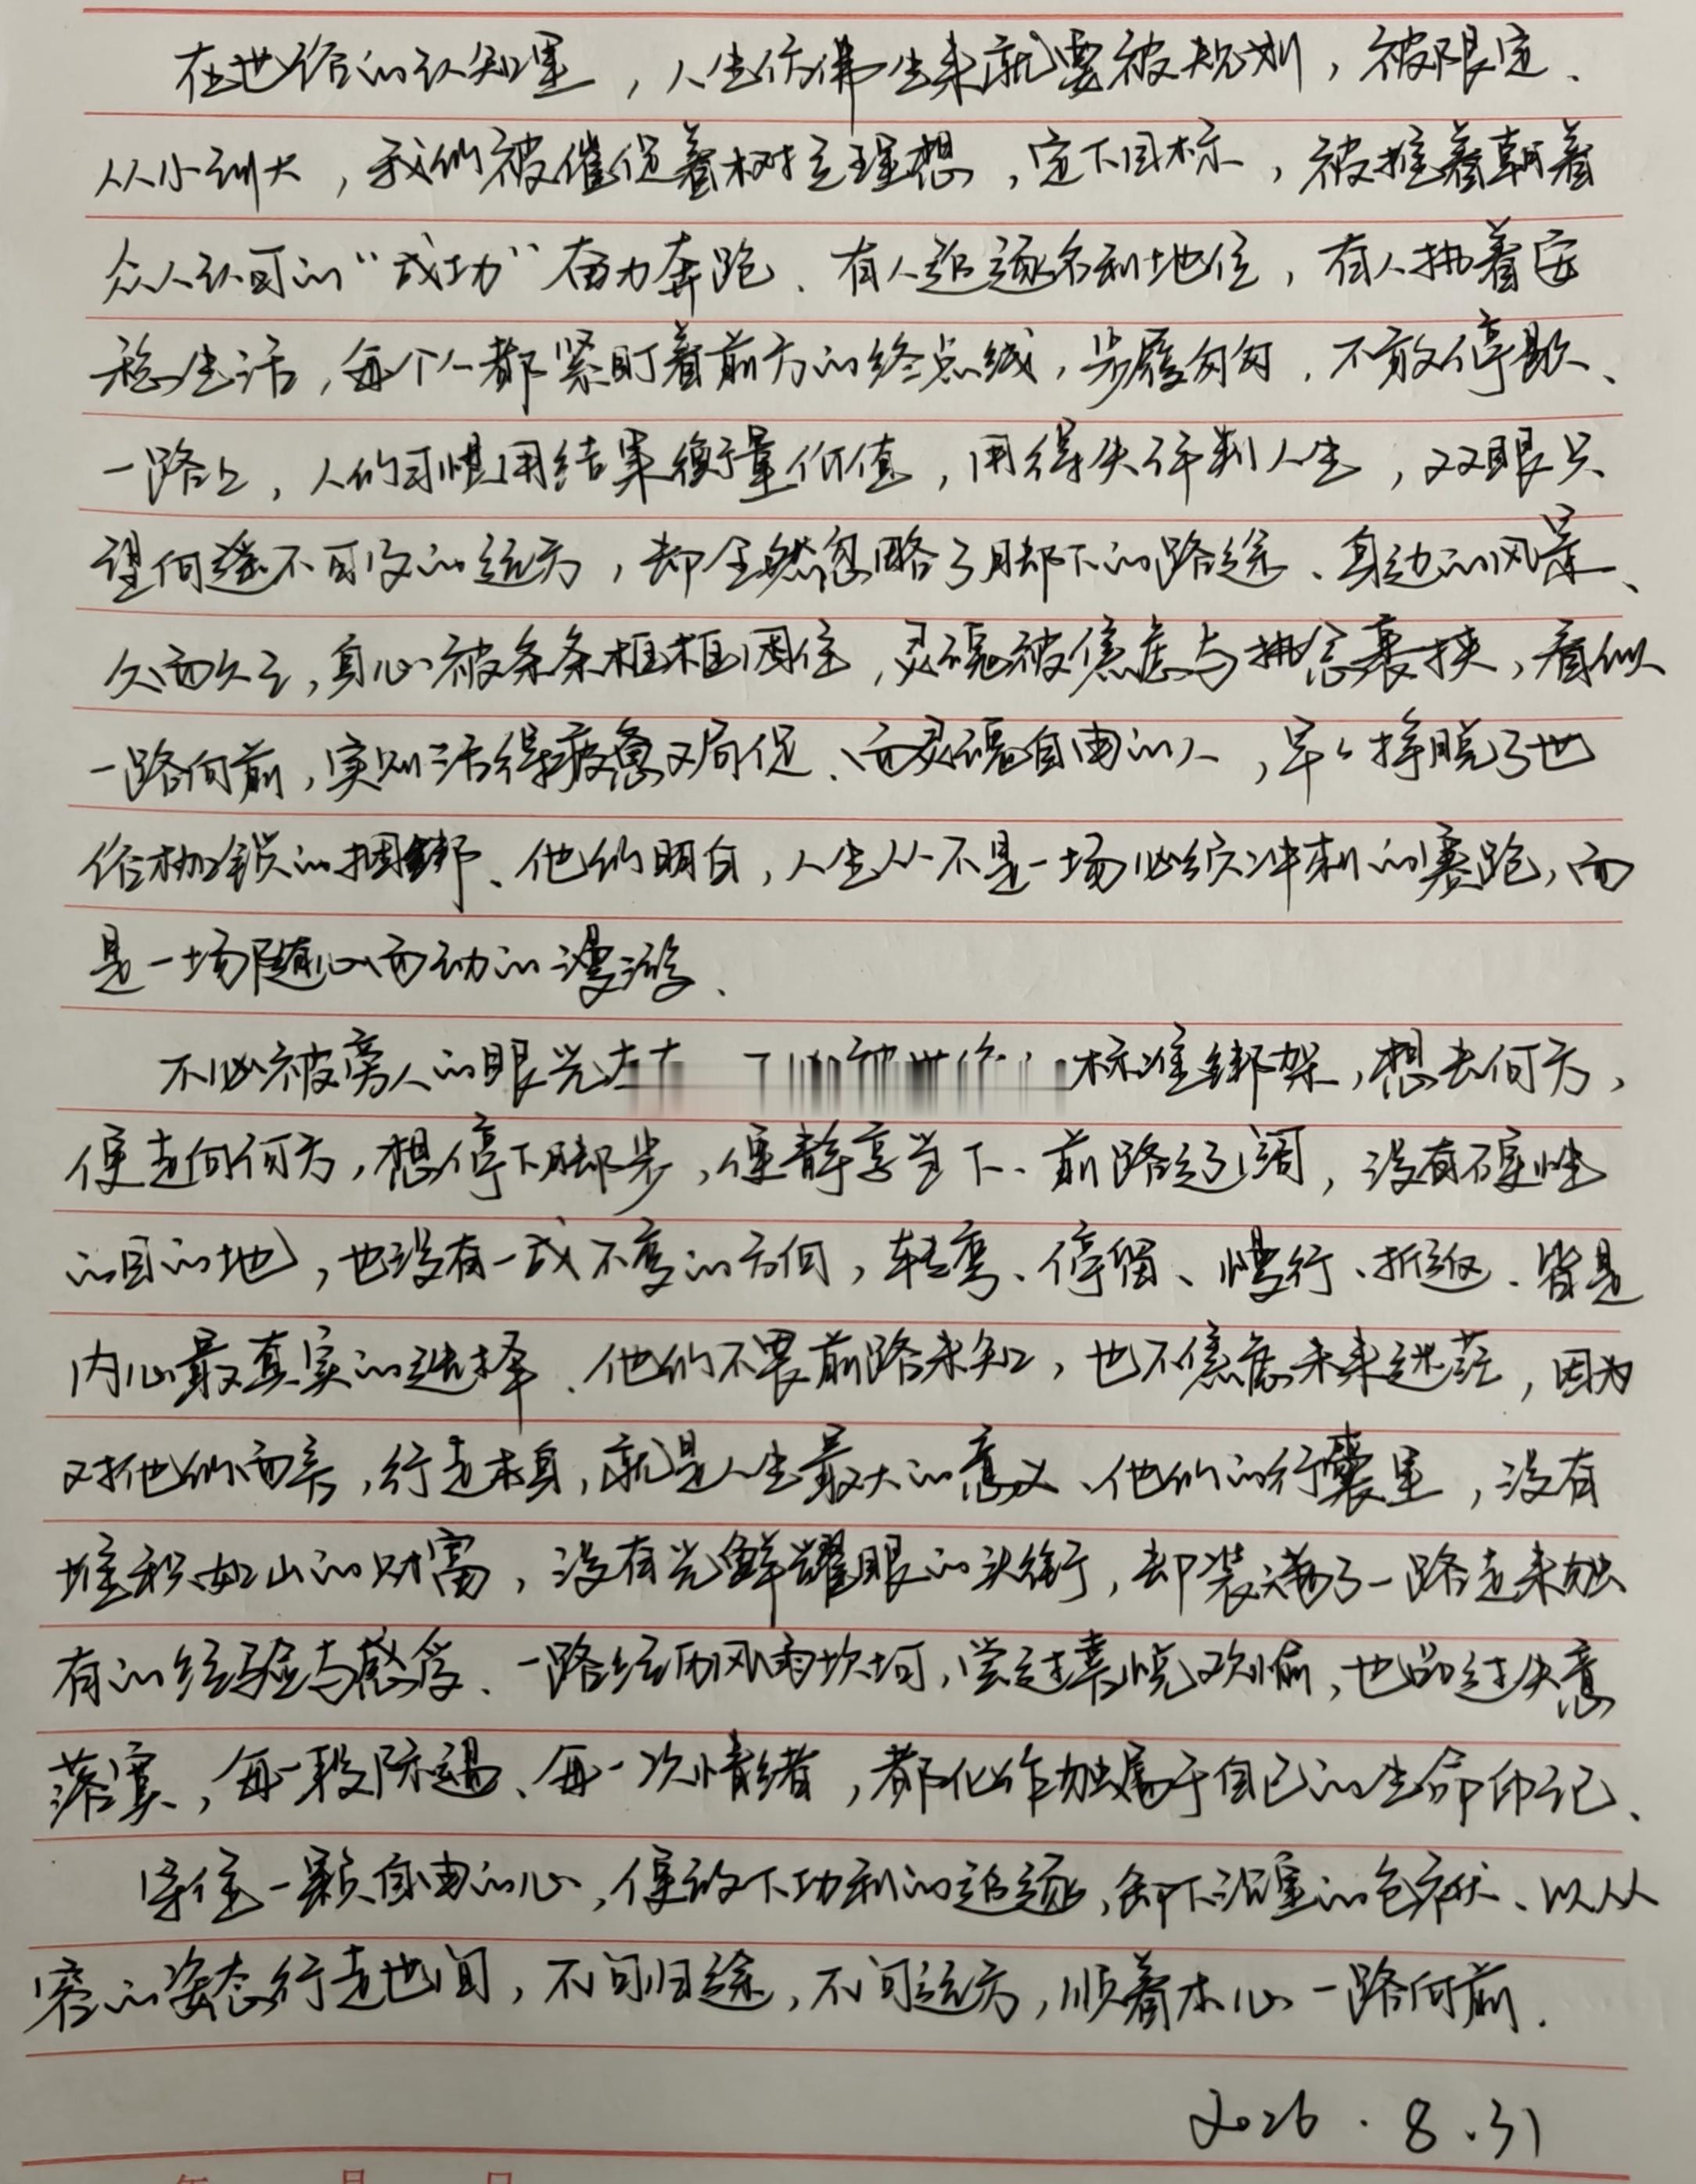 在世俗的认知里，人生仿佛生来就要被规划，被限定、
从小到大，我们被催促着树立理想，定下目标，被推着朝着
众人认可的“成功”奋力奔跑、有人追逐名利地位，有人执着安
稳生活，每个人都紧盯着前方的终点线，步履匆匆，不敢停歇、
一路上，人们习惯用结果衡量价值，用得失评判人生，双眼只
望向遥不可及的远方，却全然忽略了脚下的路途、身边的风景、
久而久之，身心被条条框框困住，灵魂被焦虑与执念裹挟，看似
一路向前，实则活得疲惫又局促、而灵魂自由的人，早早挣脱了世
俗枷锁的捆绑、他们明白，人生从不是一场必须冲刺的赛跑，而
是一场随心而动的漫游、
不必被旁人的眼光 标准绑架，想去何方，
便走向何方，想停下脚步，便静享当下、前路辽阔，没有硬性
的目的地，也没有一成不变的方向，转弯、停留、慢行、折返、皆是
内心最真实的选择、他们不畏前路未知，也不焦虑未来迷茫，因为
对他们而言，行走本身，就是人生最大的意义、他们的行囊里，没有
堆积如山的财富，没有光鲜耀眼的头衔，却装满了一路走来独
有的经验与感受、一路经历风雨坎坷，尝过喜悦欢愉，也品过失意
落寞，每一段际遇、每一次情绪，都化作独属于自己的生命印记、
守住一颗自由的心，便放下功利的追逐，卸下沉重的包袱、以从
容的姿态行走世间，不问归途，不问远方，顺着本心一路向前．
2026．8．31
年 月 日